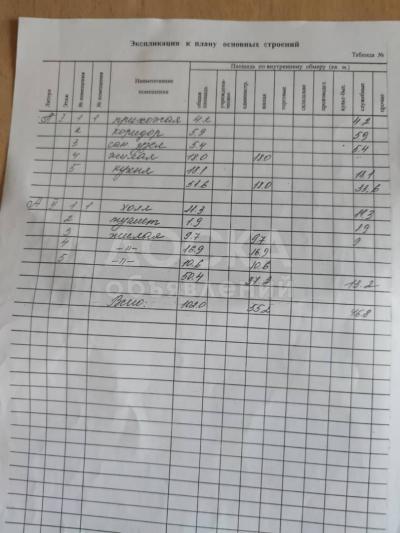 Экспликация к плану основных строений
Таблица №
Литера Этаж № помещения № помещения Наименование помещения Площадь по внутреннему обмеру (кв. м.)
общая площадь учрежденческая администр. жилая торговые складские производст. культ-быт. служебные прочие
А 3 1 1 прихожая 4.2 4.2
2 коридор 5.9 5.9
3 сан узел 5.4 5.4
4 жилая 18.0 18.0
5 кухня 18.1 18.1
51.6 18.0 33.6
А 4 1 1 холл 11.3 11.3
2 туалет 1.9 1.9
3 жилая 9.7 9.7
4 -//- 16.9 16.9
5 -//- 10.6 10.6
50.4 37.2 13.2
Всего: 102.0 55.2 46.8
ДОСКА
объявлений